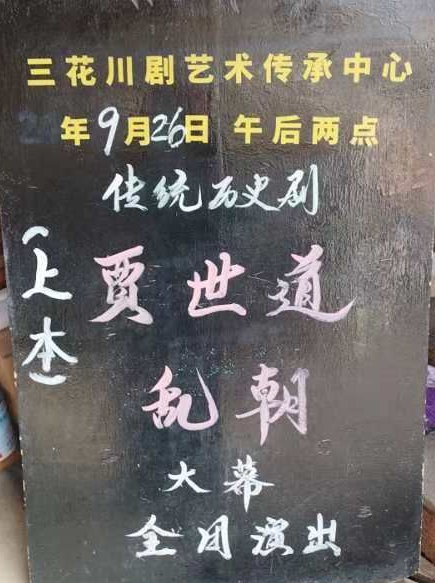 三花川剧艺术传承中心
年9月26日 午后两点
传统历史剧
(上本)
贾世道
乱朝
大幕
全团演出